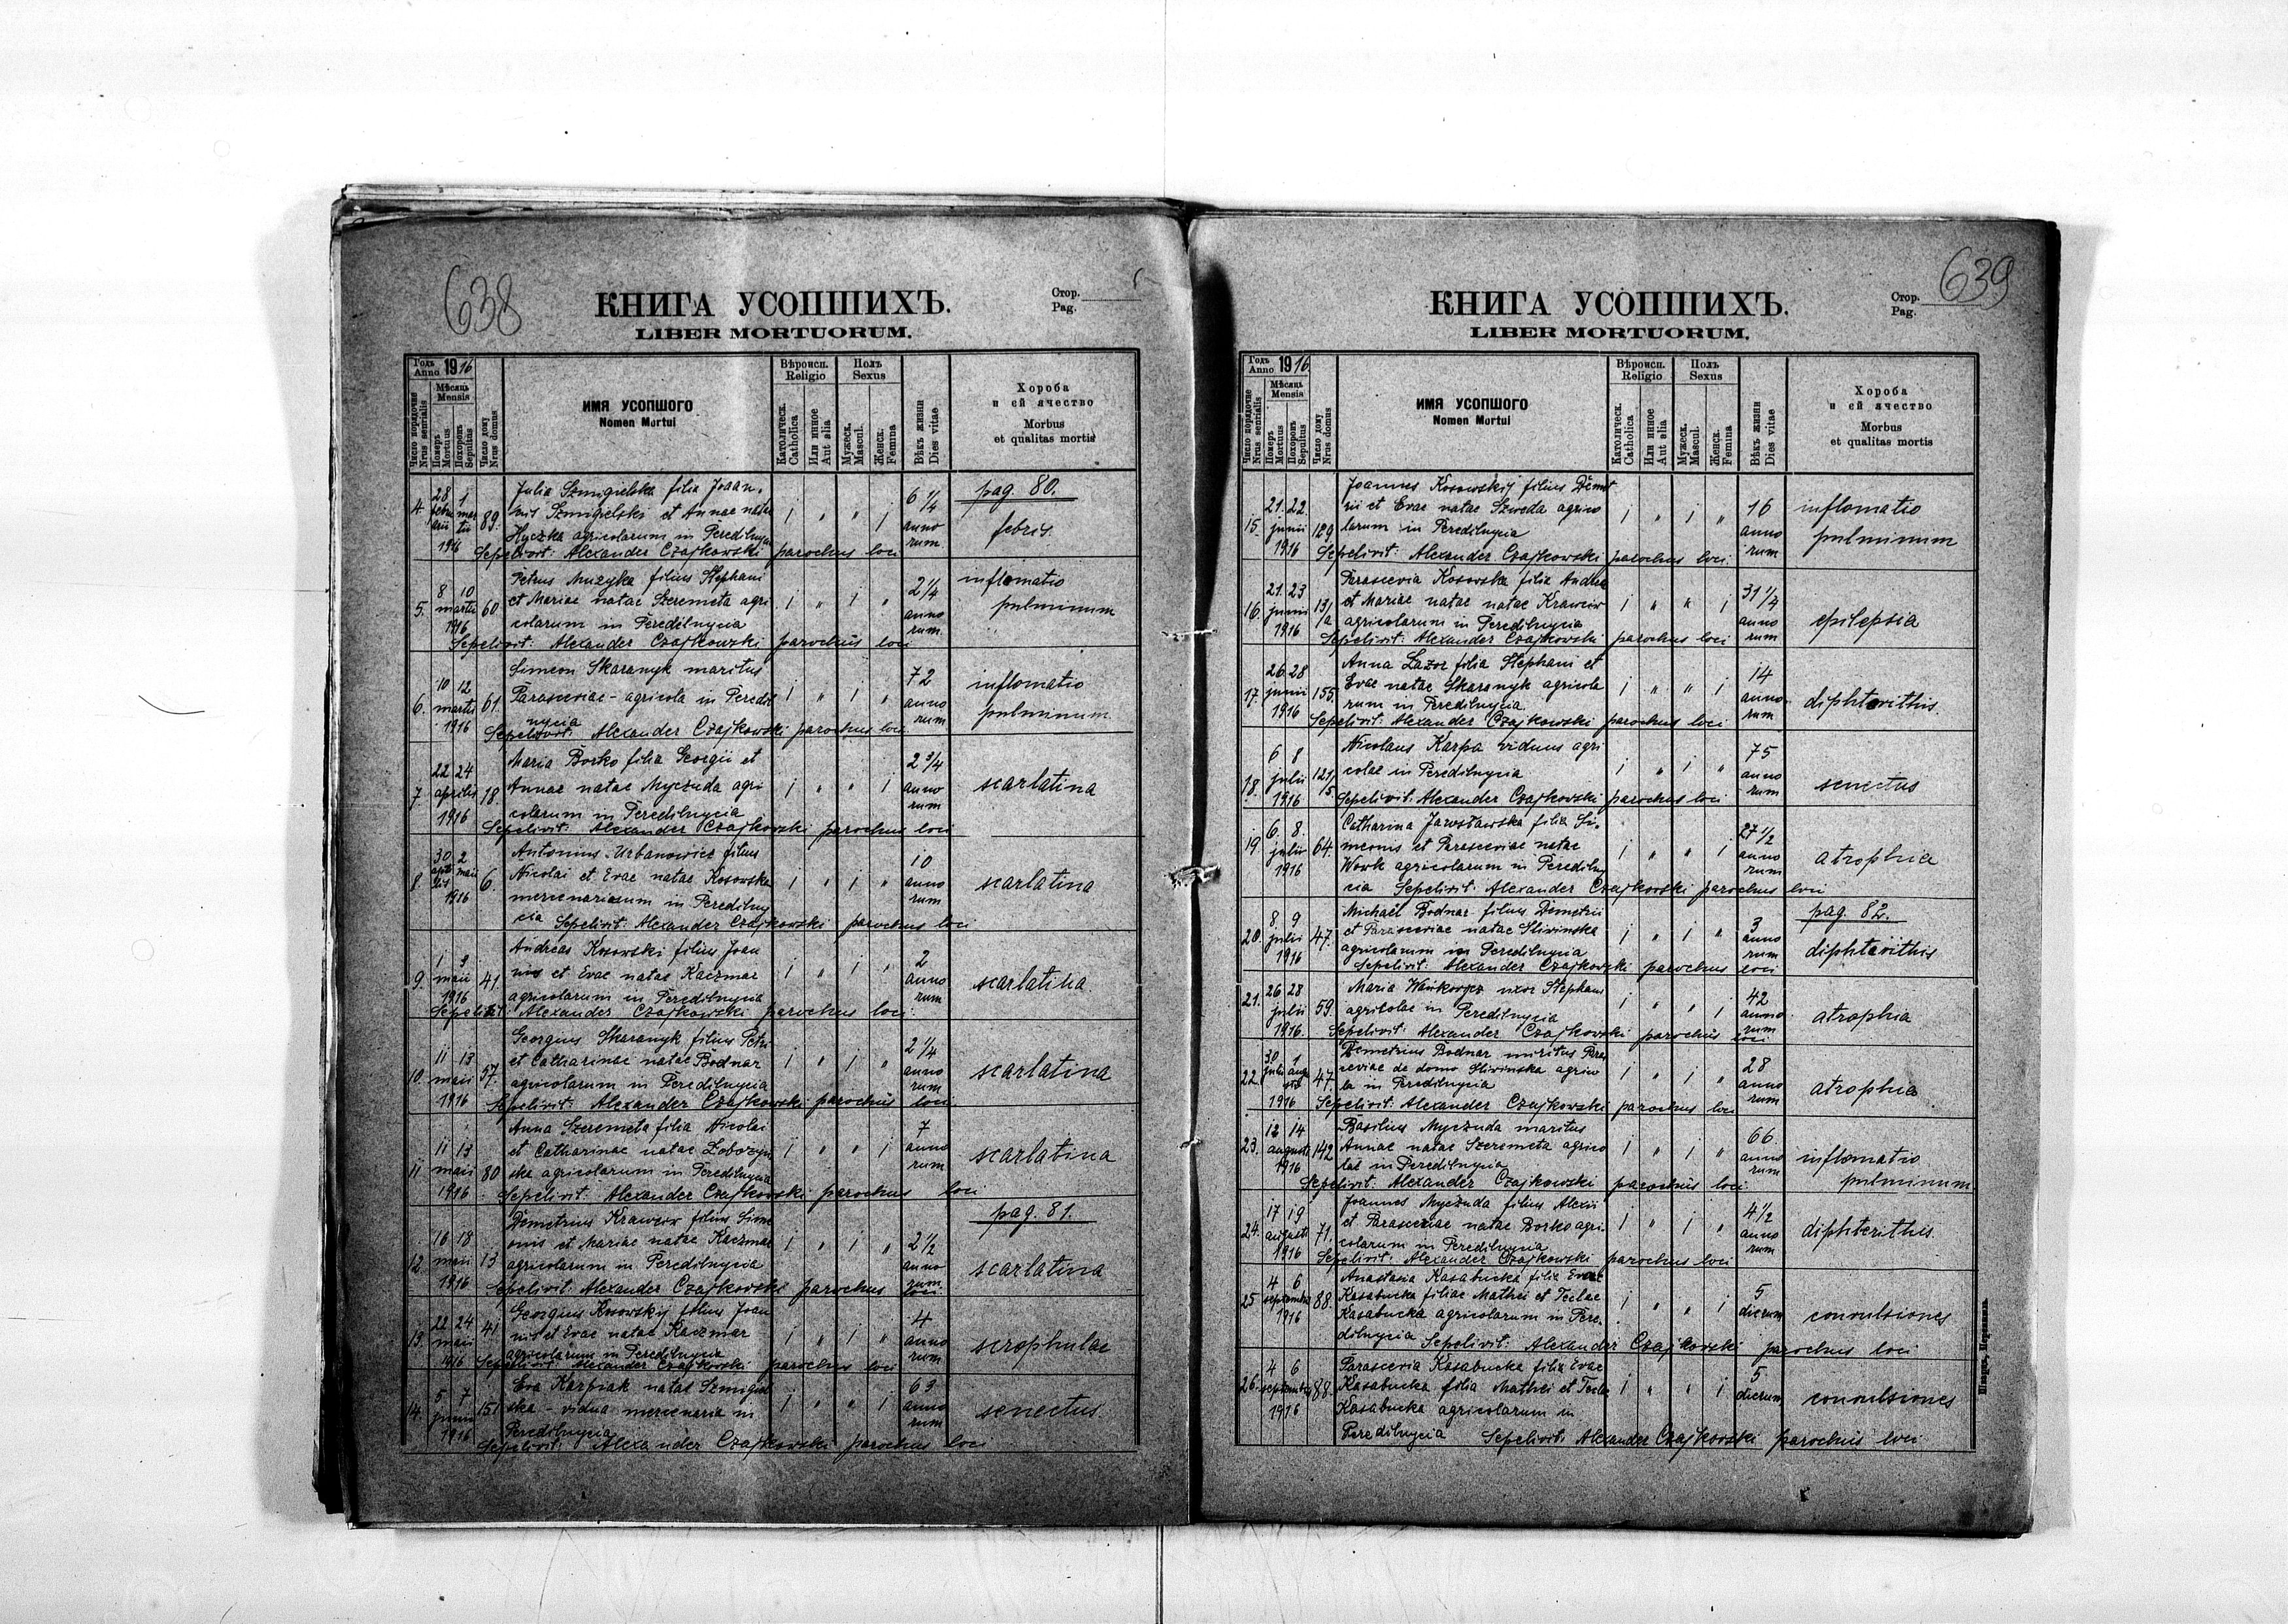 638
КНИГА УСОПШИХЪ.
LIBER MORTUORUM.
Стор.
Pag.
Годъ
Anno 1916
Мѣсяць
Mensis
Число порядочне
Nrus serialis
Померъ
Mortuus
Похоронъ
Sepultus
Число дому
Nrus domus
ИМЯ УСОПШОГО
Nomen Mortui
Вѣроисп.
Religio
Католическ.
Catholica
Или инное
Aut alia
Полъ
Sexus
Мужеск.
Mascul.
Женск.
Femina
Вѣкъ жизни
Dies vitae
Хороба
и ей ячество
Morbus
et qualitas mortis
4. 28 februarii 1 martii 1916 89.
Julia Szmigielska filia Joan-
nis Szmigielski et Annae natae
Hyczka agricolarum in Peredilnycia
1 " " 1
6 1/4 annorum
pag. 80.
febris.
Sepelivit: Alexander Czajkowski parochus loci
5. 8 10 martii 1916 60
Petrus Muzyka filius Stephani
et Mariae natae Szeremeta agri
colarum in Peredilnycia
1 " 1 "
2 1/4 annorum
inflomatio
pulminum
Sepelivit: Alexander Czajkowski parochus loci
6. 10 12 martii 1916 61.
Simeon Skaranyk maritus
Parasceviae - agricola in Peredil
nycia
1 " 1 "
72 annorum
inflomatio
pulminum
Sepelivit: Alexander Czajkowski parochus loci
7. 22 24 aprilis 1916 18.
Maria Borko filia Georgii et
Annae natae Myczuda agri
colarum in Peredilnycia
1 " " 1
2 3/4 annorum
scarlatina
Sepelivit: Alexander Czajkowski parochus loci
8. 30 aprilis 2 maii 1916 6.
Antonius Urbanowicz filius
Nicolai et Evae natae Kosowska
mercenariorum in Peredilny
cia Sepelivit: Alexander Czajkowski parochus loci
1 " 1 "
10 annorum
scarlatina
9. 1 3 maii 1916 41.
Andreas Kosowski filius Joan
nis et Evae natae Kaczmar
agricolarum in Peredilnycia
1 " 1 "
2 annorum
scarlatina
Sepelivit: Alexander Czajkowski parochus loci
10. 11 13 maii 1916 57.
Georgius Skaranyk filius Petri
et Catharinae natae Bodnar
agricolarum in Peredilnycia
1 " 1 "
2 1/4 annorum
scarlatina
Sepelivit: Alexander Czajkowski parochus loci
11 11 13 maii 1916 80
Anna Szeremeta filia Nicolai
et Catharinae natae
ska agricolarum in Peredilnycia
1 " " 1
7 annorum
scarlatina
Sepelivit: Alexander Czajkowski parochus loci
12. 16 18 maii 1916 13
Demetrius Krawciw filius Sime
onis et Mariae natae Kaczmar
agricolarum in Peredilnycia
1 " 1 "
2 1/2 annorum
pag. 81.
scarlatina
Sepelivit: Alexander Czajkowski parochus loci
13. 22 24 maii 1916 41
Georgius Kosowskij filius Joan
nis et Evae natae Kaczmar
agricolarum in Peredilnycia
1 " 1 "
4 annorum
scrophulae
Sepelivit: Alexander Czajkowski parochus loci
14. 5 7 junii 1916 151
Eva Karpiak natae Szmigiel
ska - vidua mercenaria in
Peredilnycia
1 " " 1
63 annorum
senectus.
Sepelivit: Alexander Czajkowski parochus loci
639
КНИГА УСОПШИХЪ.
LIBER MORTUORUM.
Стор.
Pag.
Годъ
Anno 1916
Мѣсяць
Mensis
Число порядочне
Nrus serialis
Померъ
Mortuus
Похоронъ
Sepultus
Число дому
Nrus domus
ИМЯ УСОПШОГО
Nomen Mortui
Вѣроисп.
Religio
Католическ.
Catholica
Или инное
Aut alia
Полъ
Sexus
Мужеск.
Mascul.
Женск.
Femina
Вѣкъ жизни
Dies vitae
Хороба
и ей ячество
Morbus
et qualitas mortis
15. 21. 22. junii 1916 129
Joannes Kosowskij filius Demet
rii et Evae natae Szweda agrico
larum in Peredilnycia
1 " 1 "
16 annorum
inflomatio
pulminum
Sepelivit: Alexander Czajkowski parochus loci
16. 21. 23 junii 1916 13/a
Parascevia Kosowska filia Andreae
et Mariae natae natae Krawciw
agricolarum in Peredilnycia
1 " " 1
31 1/4 annorum
epilepsia
Sepelivit: Alexander Czajkowski parochus loci
17. 26 28 junii 1916 155.
Anna Lazor filia Stephani et
Evae natae Skaranyk agricola
rum in Peredilnycia
1 " " 1
14 annorum
diphterithis.
Sepelivit: Alexander Czajkowski parochus loci
18. 6 8 julii 1916 121/5.
Nicolaus Karpa viduus agri
colae in Peredilnycia
1 " 1 "
75 annorum
senectus
Sepelivit: Alexander Czajkowski parochus loci
19 6. 8. julii 1916 64.
Catharina Jarosławska filia Si-
meonis et Parasceviae natae
Wowk agricolarum in Peredilny
cia Sepelivit: Alexander Czajkowski parochus loci
1 " " 1
27 1/2 annorum
atrophia
20. 8 9 julii 1916 47.
Michaël Bodnar filius Demetrii
et Parasceviae natae Sliwinska
agricolarum in Peredilnycia
1 " 1 "
3 annorum
pag. 82.
diphterithis
Sepelivit: Alexander Czajkowski parochus loci
21. 26 28 julii 1916. 59.
Maria uxor Stephani
agricolae in Peredilnycia
1 " " 1
42 annorum
atrophia
Sepelivit: Alexander Czajkowski parochus loci
22. 30 julii 1 augusti 1916 47.
Demetrius Bodnar maritus Paras
ceviae de domo Sliwinska agrico
la in Peredilnycia
1 " 1 "
28 annorum
atrophia
Sepelivit: Alexander Czajkowski parochus loci
23. 12 14 augusti 1916 142
Basilius Myczuda maritus
Annae natae Szeremeta agrico
lae in Peredilnycia
1 " 1 "
66 annorum
inflomatio
pulminum
Sepelivit: Alexander Czajkowski parochus loci
24. 17 19 augusti 1916 71.
Joannes Myczuda filius Alexii
et Parasceviae natae Borko agri-
colarum in Peredilnycia
1 " 1 "
4 1/2 annorum
diphterithis.
Sepelivit: Alexander Czajkowski parochus loci
25 4 6 septembris 1916 88.
Anastasia Kasabucka filia Evae
Kasabucka filiae Mathei et Teclae
Kasabucka agricolarum in Pere-
dilnycia Sepelivit: Alexander Czajkowski parochus loci
1 " " 1
5 dierum
convulsiones
26. 4 6 septembris 1916 88.
Parascevia Kasabucka filia Evae
Kasabucka filia Mathei et Teclae
Kasabucka agricolarum in
Peredilnycia Sepelivit: Alexander Czajkowski parochus loci
1 " " 1
5 dierum
convulsiones